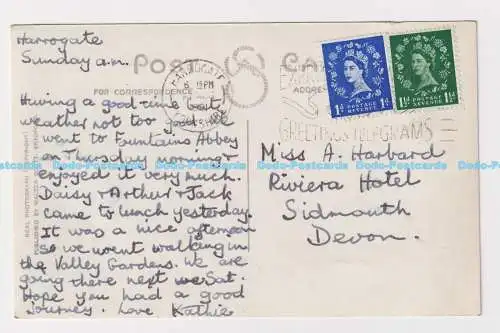 Harrogate
Sunday a.m.
POST CARD
FOR CORRESPONDENCE
ADDRESS
Having a good time but
weather not too good. We
went to Fountains Abbey
on Thursday morning &
enjoyed it very much
Daisy & Arthur & Jack
came to lunch yesterday.
It was a nice afternoon
so we went walking in
the Valley Gardens. We are
going there next wk Sat.
Hope you had a good
journey. Love Kathie
HARROGATE
GREETINGS TELEGRAMS
1D POSTAGE REVENUE 1D
1½D POSTAGE REVENUE 1½D
Miss A. Harbard
Riviera Hotel
Sidmouth
Devon.
Dado-Postcards